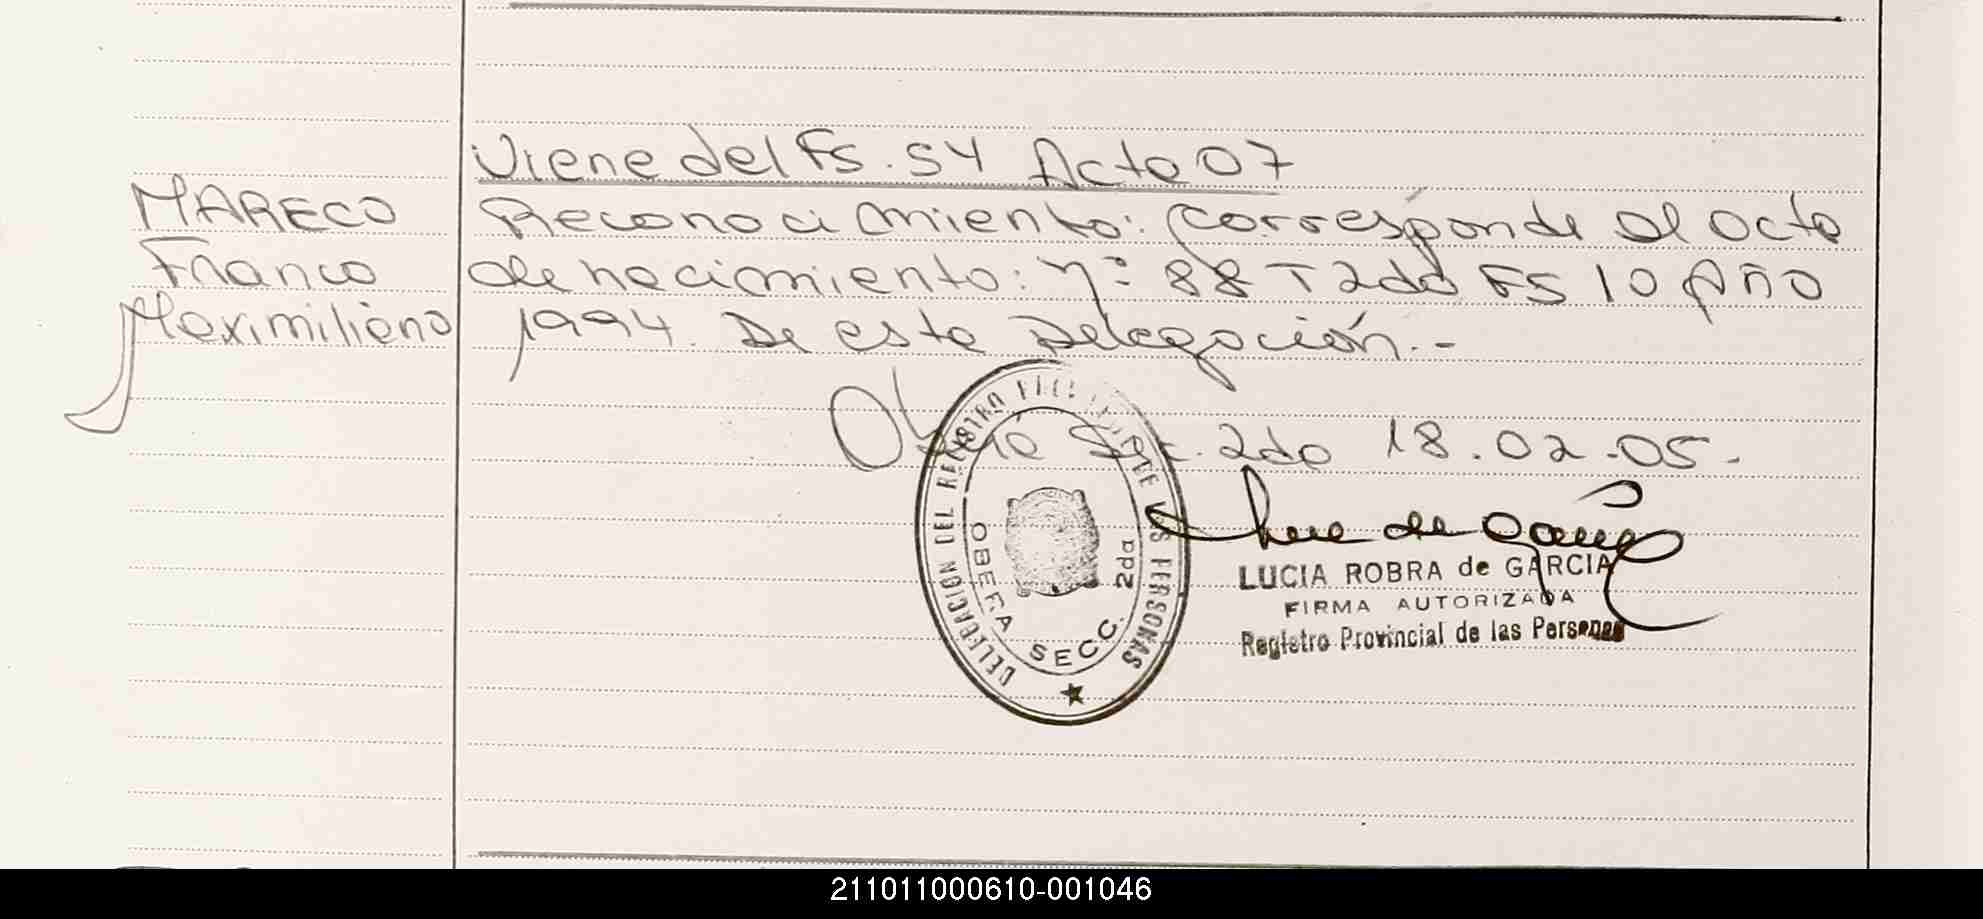 Viene del Fs. 54 Acta 07
MARECO
Franco
Maximiliano
Reconocimiento: Corresponde al acta
de nacimiento: nº 88 T 2do FS 10 Año
1994. De esta Delegación.-
Oberá Sec. 2da 18.02.05.
DELEGACION DEL REGISTRO PERSONAS
OBERA SECC. 2da
LUCIA ROBRA de GARCIA
FIRMA AUTORIZADA
Registro Provincial de las Personas
211011000610-001046